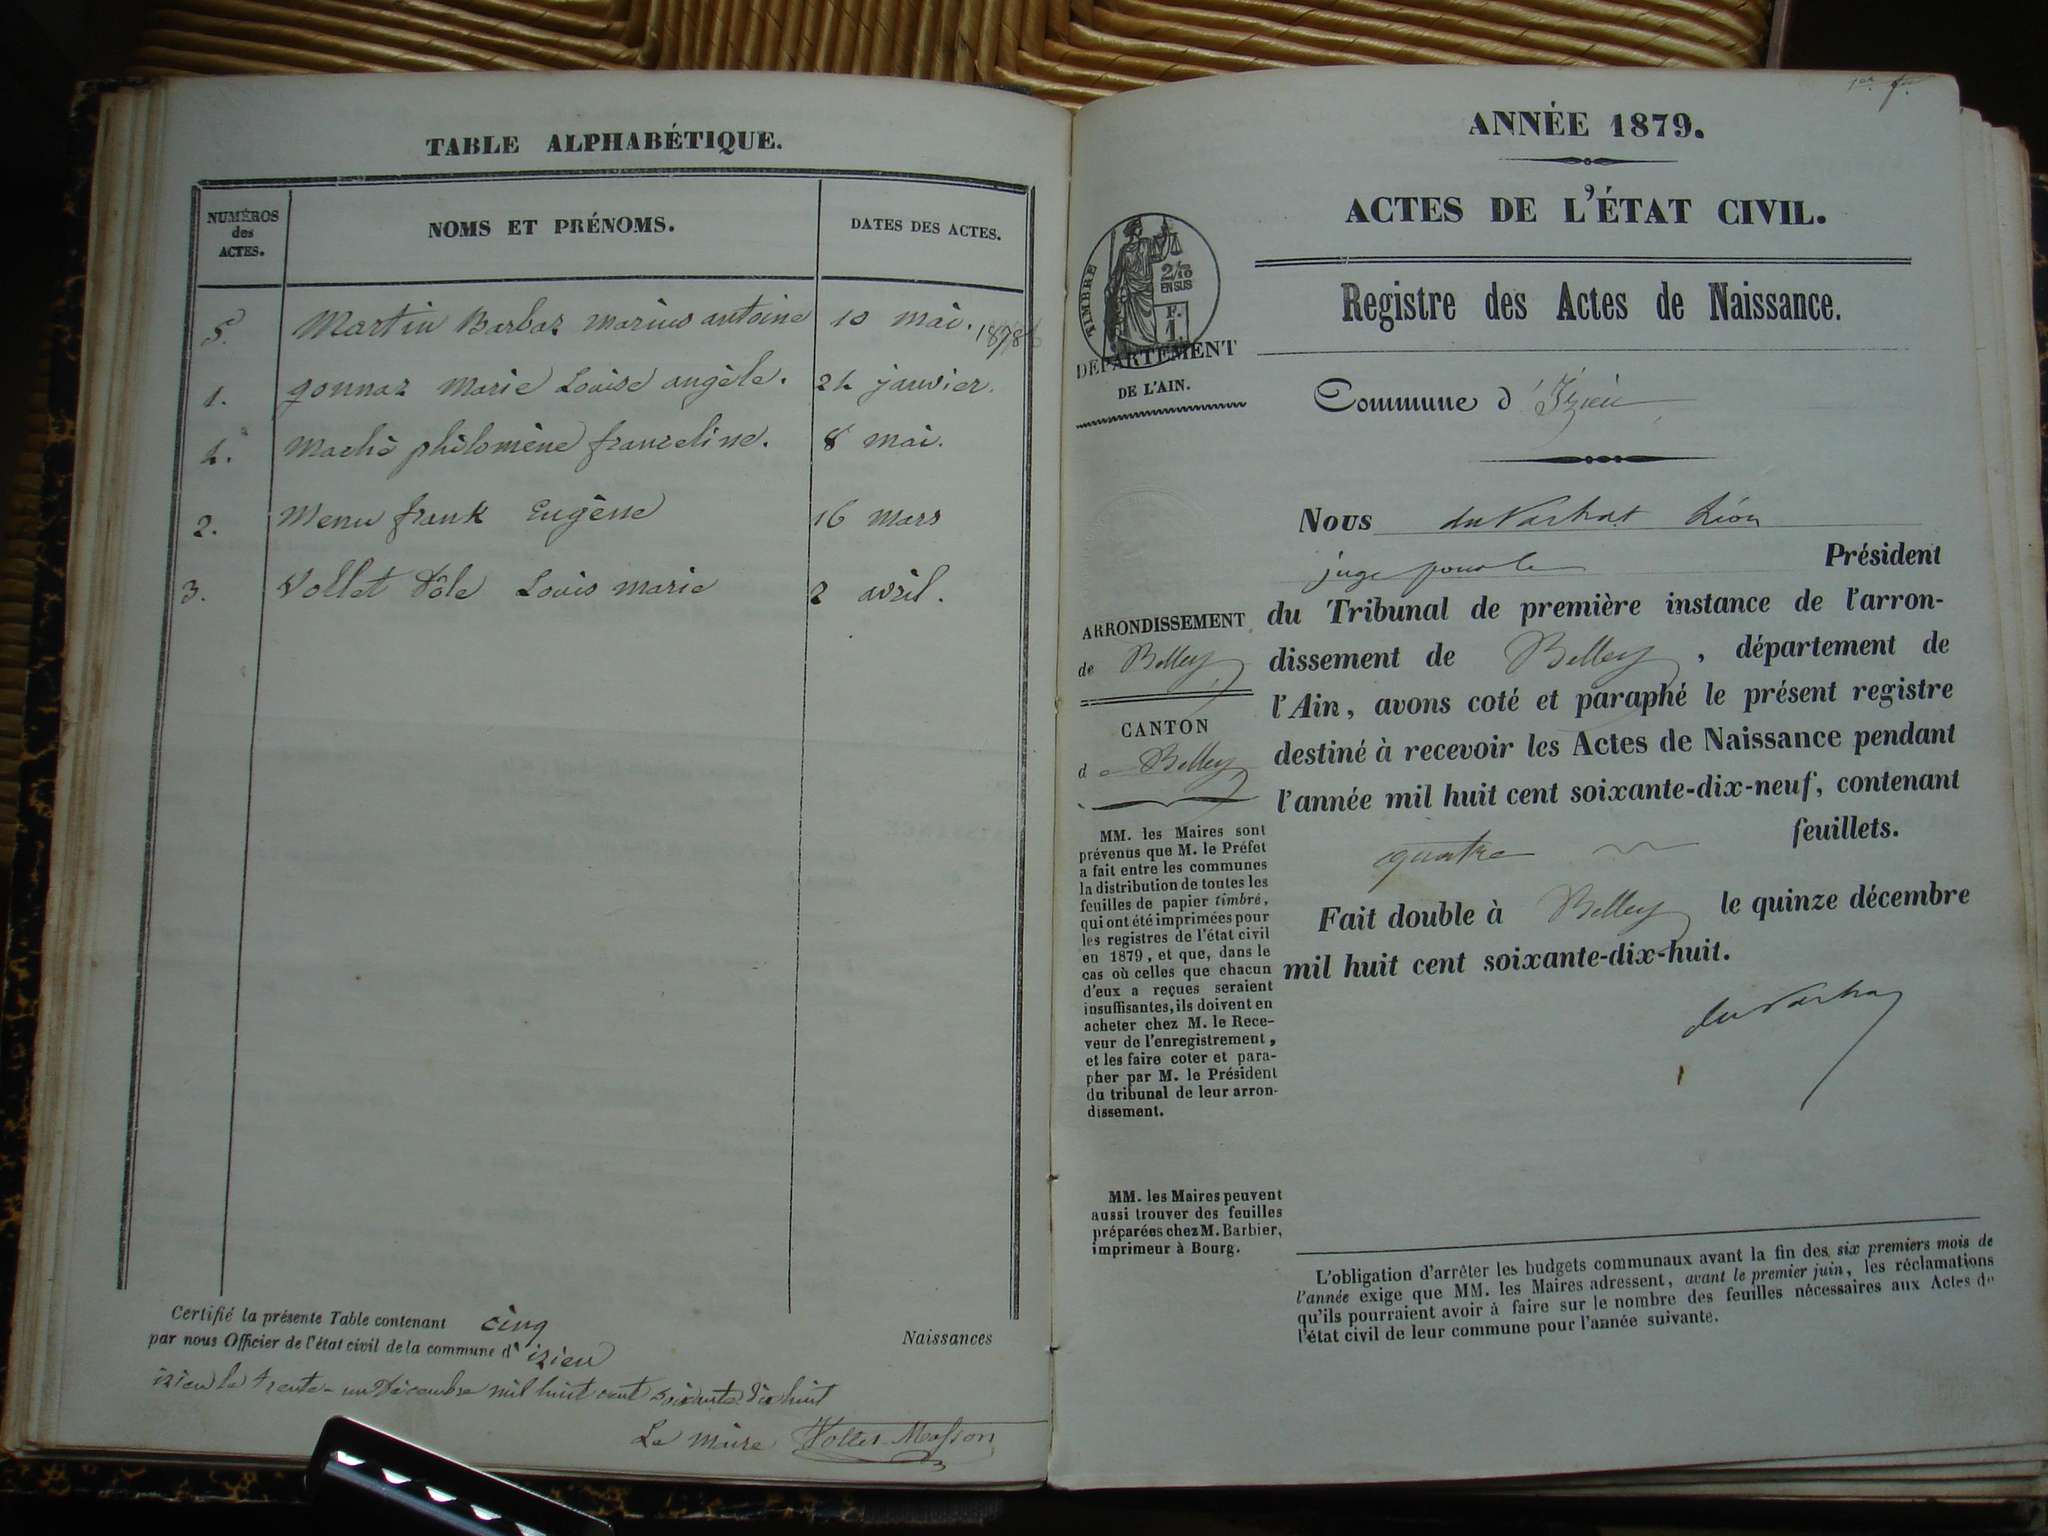 TABLE ALPHABÉTIQUE.
NUMÉROS
des
ACTES.
NOMS ET PRÉNOMS.
DATES DES ACTES.
5. Martin Barbaz marius antoine 10 mai. 1878
1. gonnaz Marie Louise angèle. 24 janvier.
4. Machè philomène franceline. 8 mai.
2. Menu frank Eugène 16 mars
3. Vollet Dôle Louis marie 2 avril.
Certifié la présente Table contenant cinq
par nous Officier de l'état civil de la commune d' izieu
izieu le trente-un Décembre mil huit cent soixante dix huit
Le Maire
Naissances
1er
ANNÉE 1879.
ACTES DE L'ÉTAT CIVIL.
Registre des Actes de Naissance.
TIMBRE
2/10
EN SUS
F.
1
DÉPARTEMENT
DE L'AIN.
Commune d'Izieu
Nous Léon
juge pour le Président
du Tribunal de première instance de l'arron-
dissement de Belley, département de
l'Ain, avons coté et paraphé le présent registre
destiné à recevoir les Actes de Naissance pendant
l'année mil huit cent soixante-dix-neuf, contenant
quatre feuillets.
Fait double à Belley le quinze décembre
mil huit cent soixante-dix-huit.
ARRONDISSEMENT
de Belley
CANTON
de Belley
MM. les Maires sont
prévenus que M. le Préfet
a fait entre les communes
la distribution de toutes les
feuilles de papier timbré,
qui ont été imprimées pour
les registres de l'état civil
en 1879, et que, dans le
cas où celles que chacun
d'eux a reçues seraient
insuffisantes, ils doivent en
acheter chez M. le Rece-
veur de l'enregistrement,
et les faire coter et para-
pher par M. le Président
du tribunal de leur arron-
dissement.
MM. les Maires peuvent
aussi trouver des feuilles
préparées chez M. Barbier,
imprimeur à Bourg.
L'obligation d'arrêter les budgets communaux avant la fin des six premiers mois de
l'année exige que MM. les Maires adressent, avant le premier juin, les réclamations
qu'ils pourraient avoir à faire sur le nombre des feuilles nécessaires aux Actes de
l'état civil de leur commune pour l'année suivante.